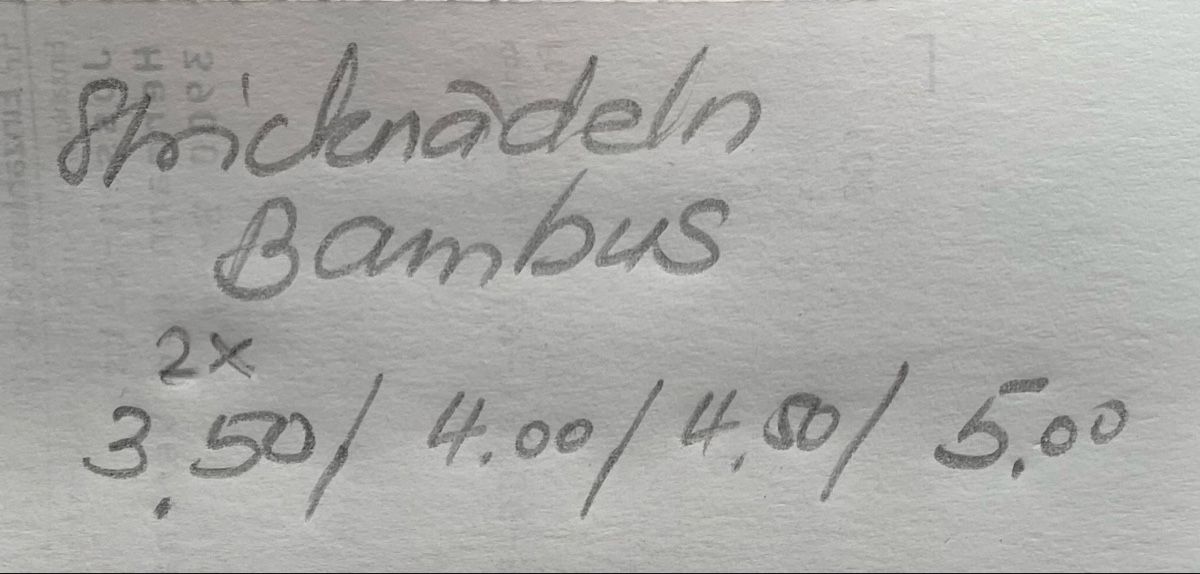 Stricknadeln
Bambus
2x
3.50/ 4.00/ 4.50/ 5.00